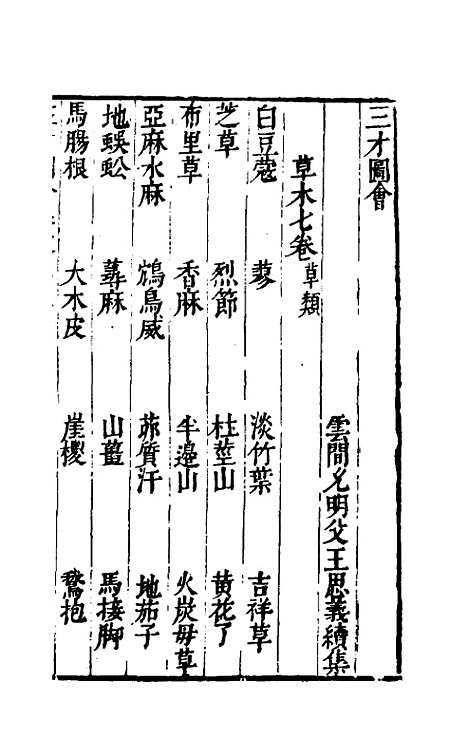 三才圖會
雲間允明父王思義續集
草木七卷 草類
白豆蔻 蓼 淡竹葉 吉祥草
芝草 烈節 杜莖山 黃花了
布里草 香麻 半邊山 火炭母草
亞麻水麻 鴆鳥威 茆質汗 地茄子
地蜈蚣 蕁麻 山薑 馬接脚
馬腸根 大木皮 崖椶 鵞抱